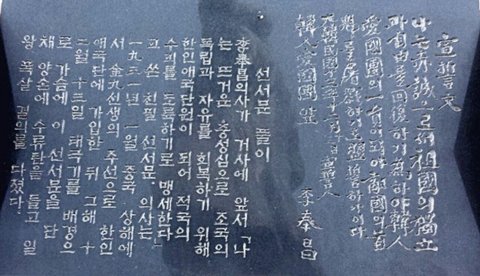 宣誓文
나는赤誠으로써祖國의獨立
과自由를回復하기爲하야韓人
愛國團의一員이되야敵國의首
魁를屠戮하기로盟誓하나이다
大韓民國十三年十二月十三日宣誓人
韓人愛國團앞 李奉昌
선서문 풀이
李奉昌의사가 거사에 앞서 「나
는 뜨거운 충성심으로 조국의
독립과 자유를 회복하기 위해
한인애국단원이 되어 적국의
수괴를 도륙하기로 맹세한다」
고 쓴 친필 선서문. 의사는
一九三一년 一월 중국 상해에
서 金九선생의 주선으로 한인
애국단에 가입한 뒤 그해 十
二월 十三일 태극기를 배경으
로 가슴에 이 선서문을 단
채 양손에 수류탄을 들고 일
왕 폭살 결의를 다졌다.